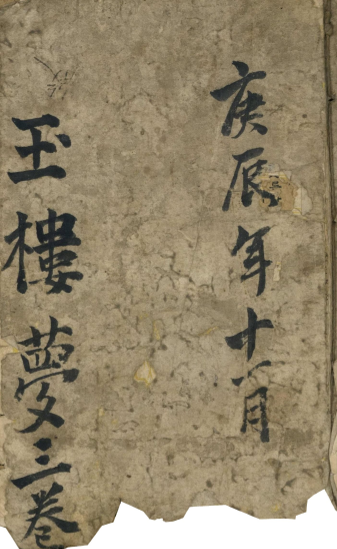 庚辰年十一月
玉樓夢三卷